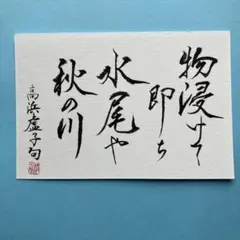 物浸けて
即ち
水尾や
秋の川
高浜虚子句